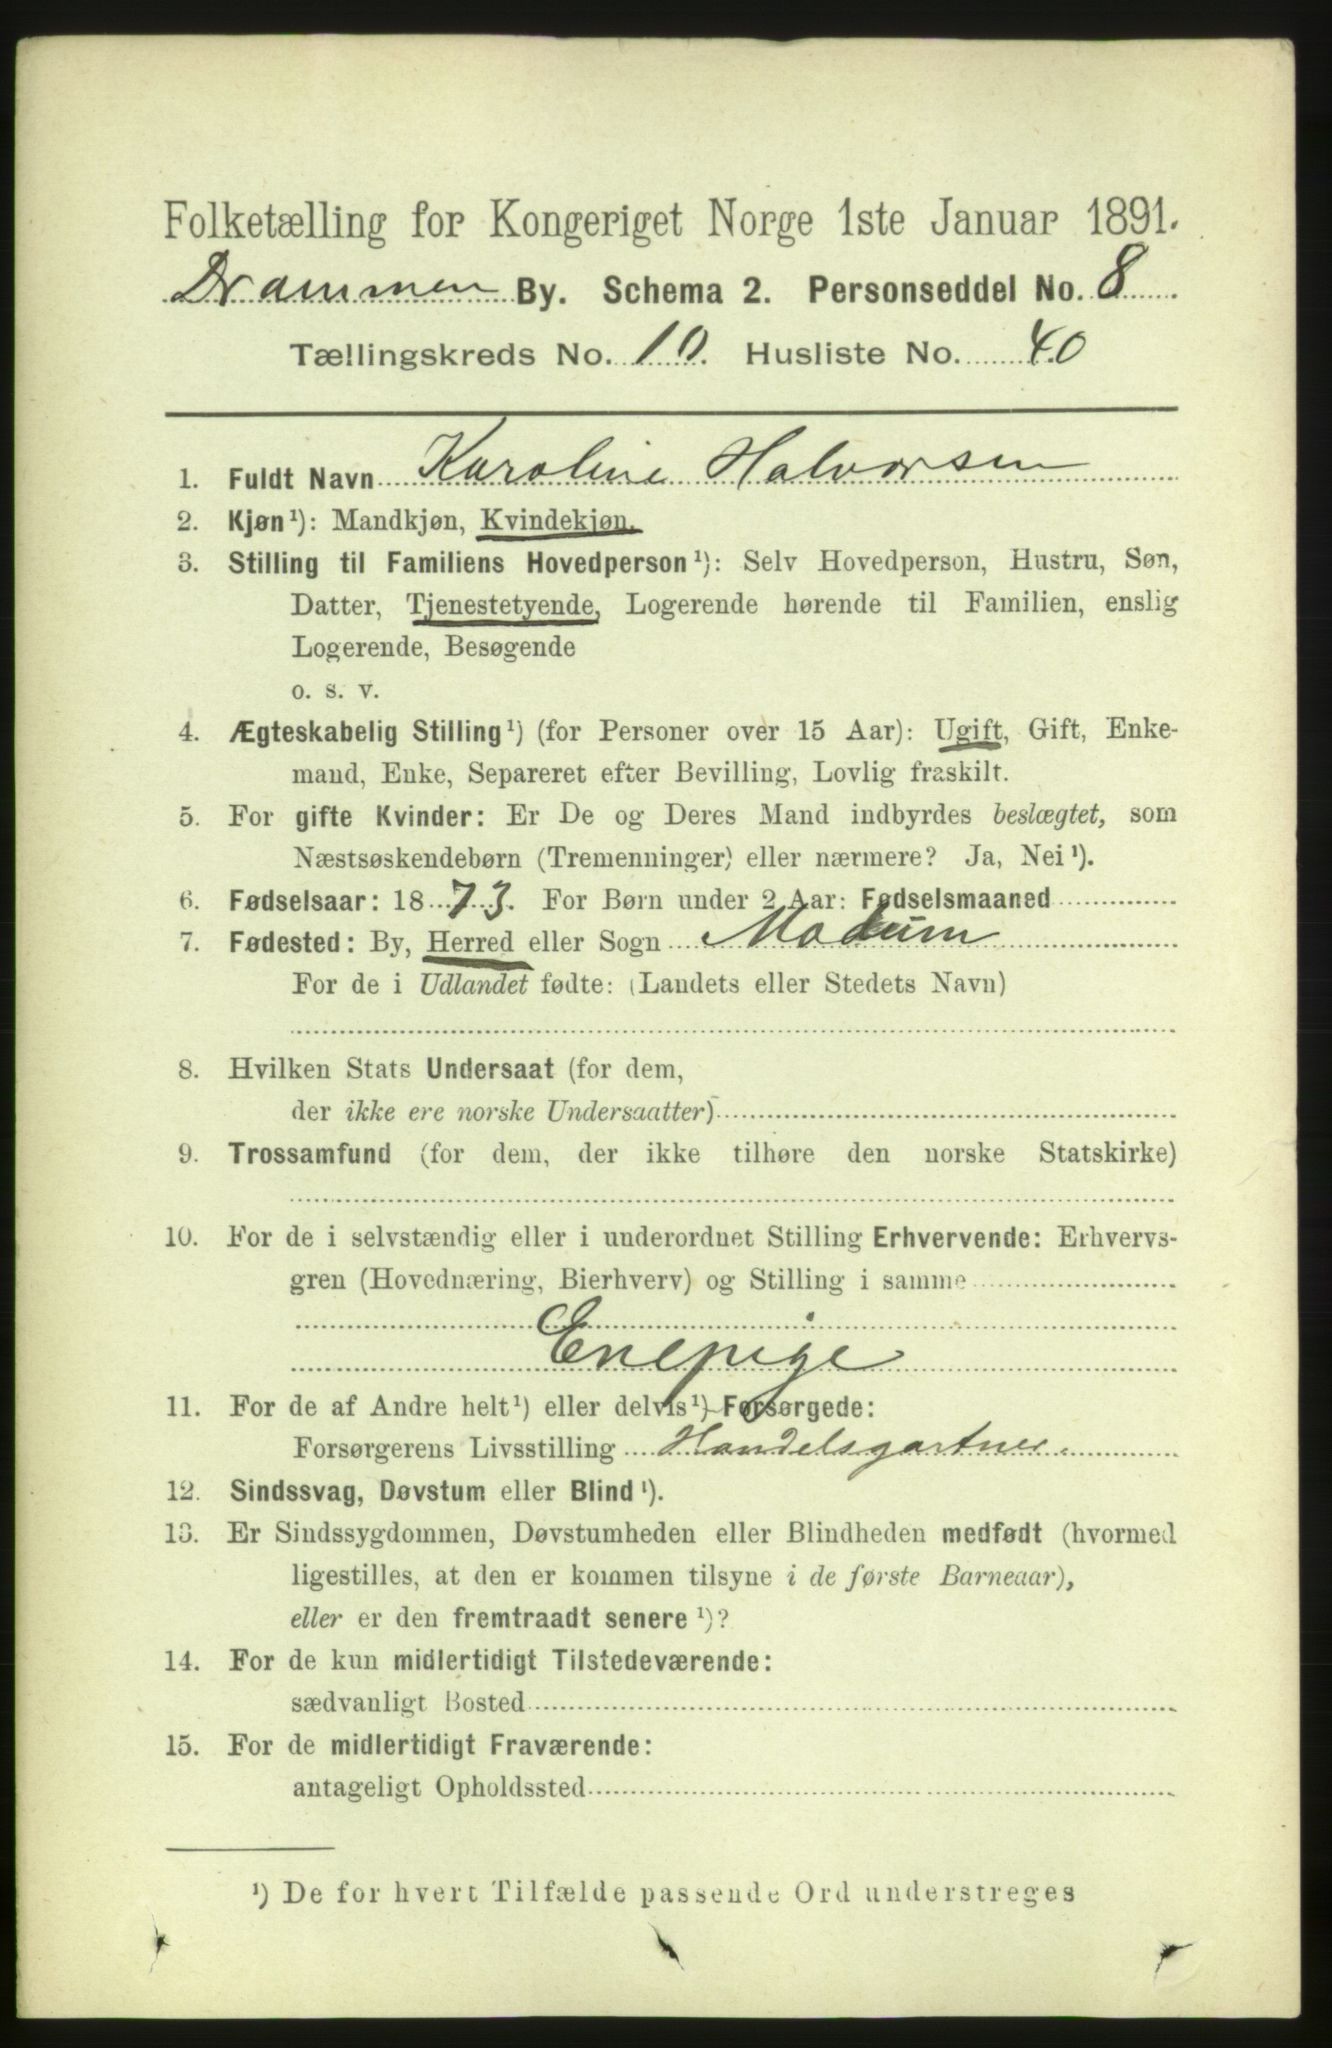 Folketælling for Kongeriget Norge 1ste Januar 1891.
Drammen By. Schema 2. Personseddel No. 8
Tællingskreds No. 10. Husliste No. 40
1. Fuldt Navn Karoline Halvorsen
2. Kjøn¹): Mandkjøn, Kvindekjøn.
3. Stilling til Familiens Hovedperson¹): Selv Hovedperson, Hustru, Søn,
Datter, Tjenestetyende, Logerende hørende til Familien, enslig
Logerende, Besøgende
o. s. v.
4. Ægteskabelig Stilling¹) (for Personer over 15 Aar): Ugift, Gift, Enke-
mand, Enke, Separeret efter Bevilling, Lovlig fraskilt.
5. For gifte Kvinder: Er De og Deres Mand indbyrdes beslægtet, som
Næstsøskendebørn (Tremenninger) eller nærmere? Ja, Nei¹).
6. Fødselsaar: 1873. For Børn under 2 Aar: Fødselsmaaned
7. Fødested: By, Herred eller Sogn Modum
For de i Udlandet fødte: (Landets eller Stedets Navn)
8. Hvilken Stats Undersaat (for dem,
der ikke ere norske Undersaatter)
9. Trossamfund (for dem, der ikke tilhøre den norske Statskirke)
10. For de i selvstændig eller i underordnet Stilling Erhvervende: Erhvervs-
gren (Hovednæring, Bierhverv) og Stilling i samme
Enepige
11. For de af Andre helt¹) eller delvis¹) Forsørgede:
Forsørgerens Livsstilling Handelsgartner.
12. Sindssvag, Døvstum eller Blind¹).
13. Er Sindssygdommen, Døvstumheden eller Blindheden medfødt (hvormed
ligestilles, at den er kommen tilsyne i de første Barneaar),
eller er den fremtraadt senere¹)?
14. For de kun midlertidigt Tilstedeværende:
sædvanligt Bosted
15. For de midlertidigt Fraværende:
antageligt Opholdssted
¹) De for hvert Tilfælde passende Ord understreges